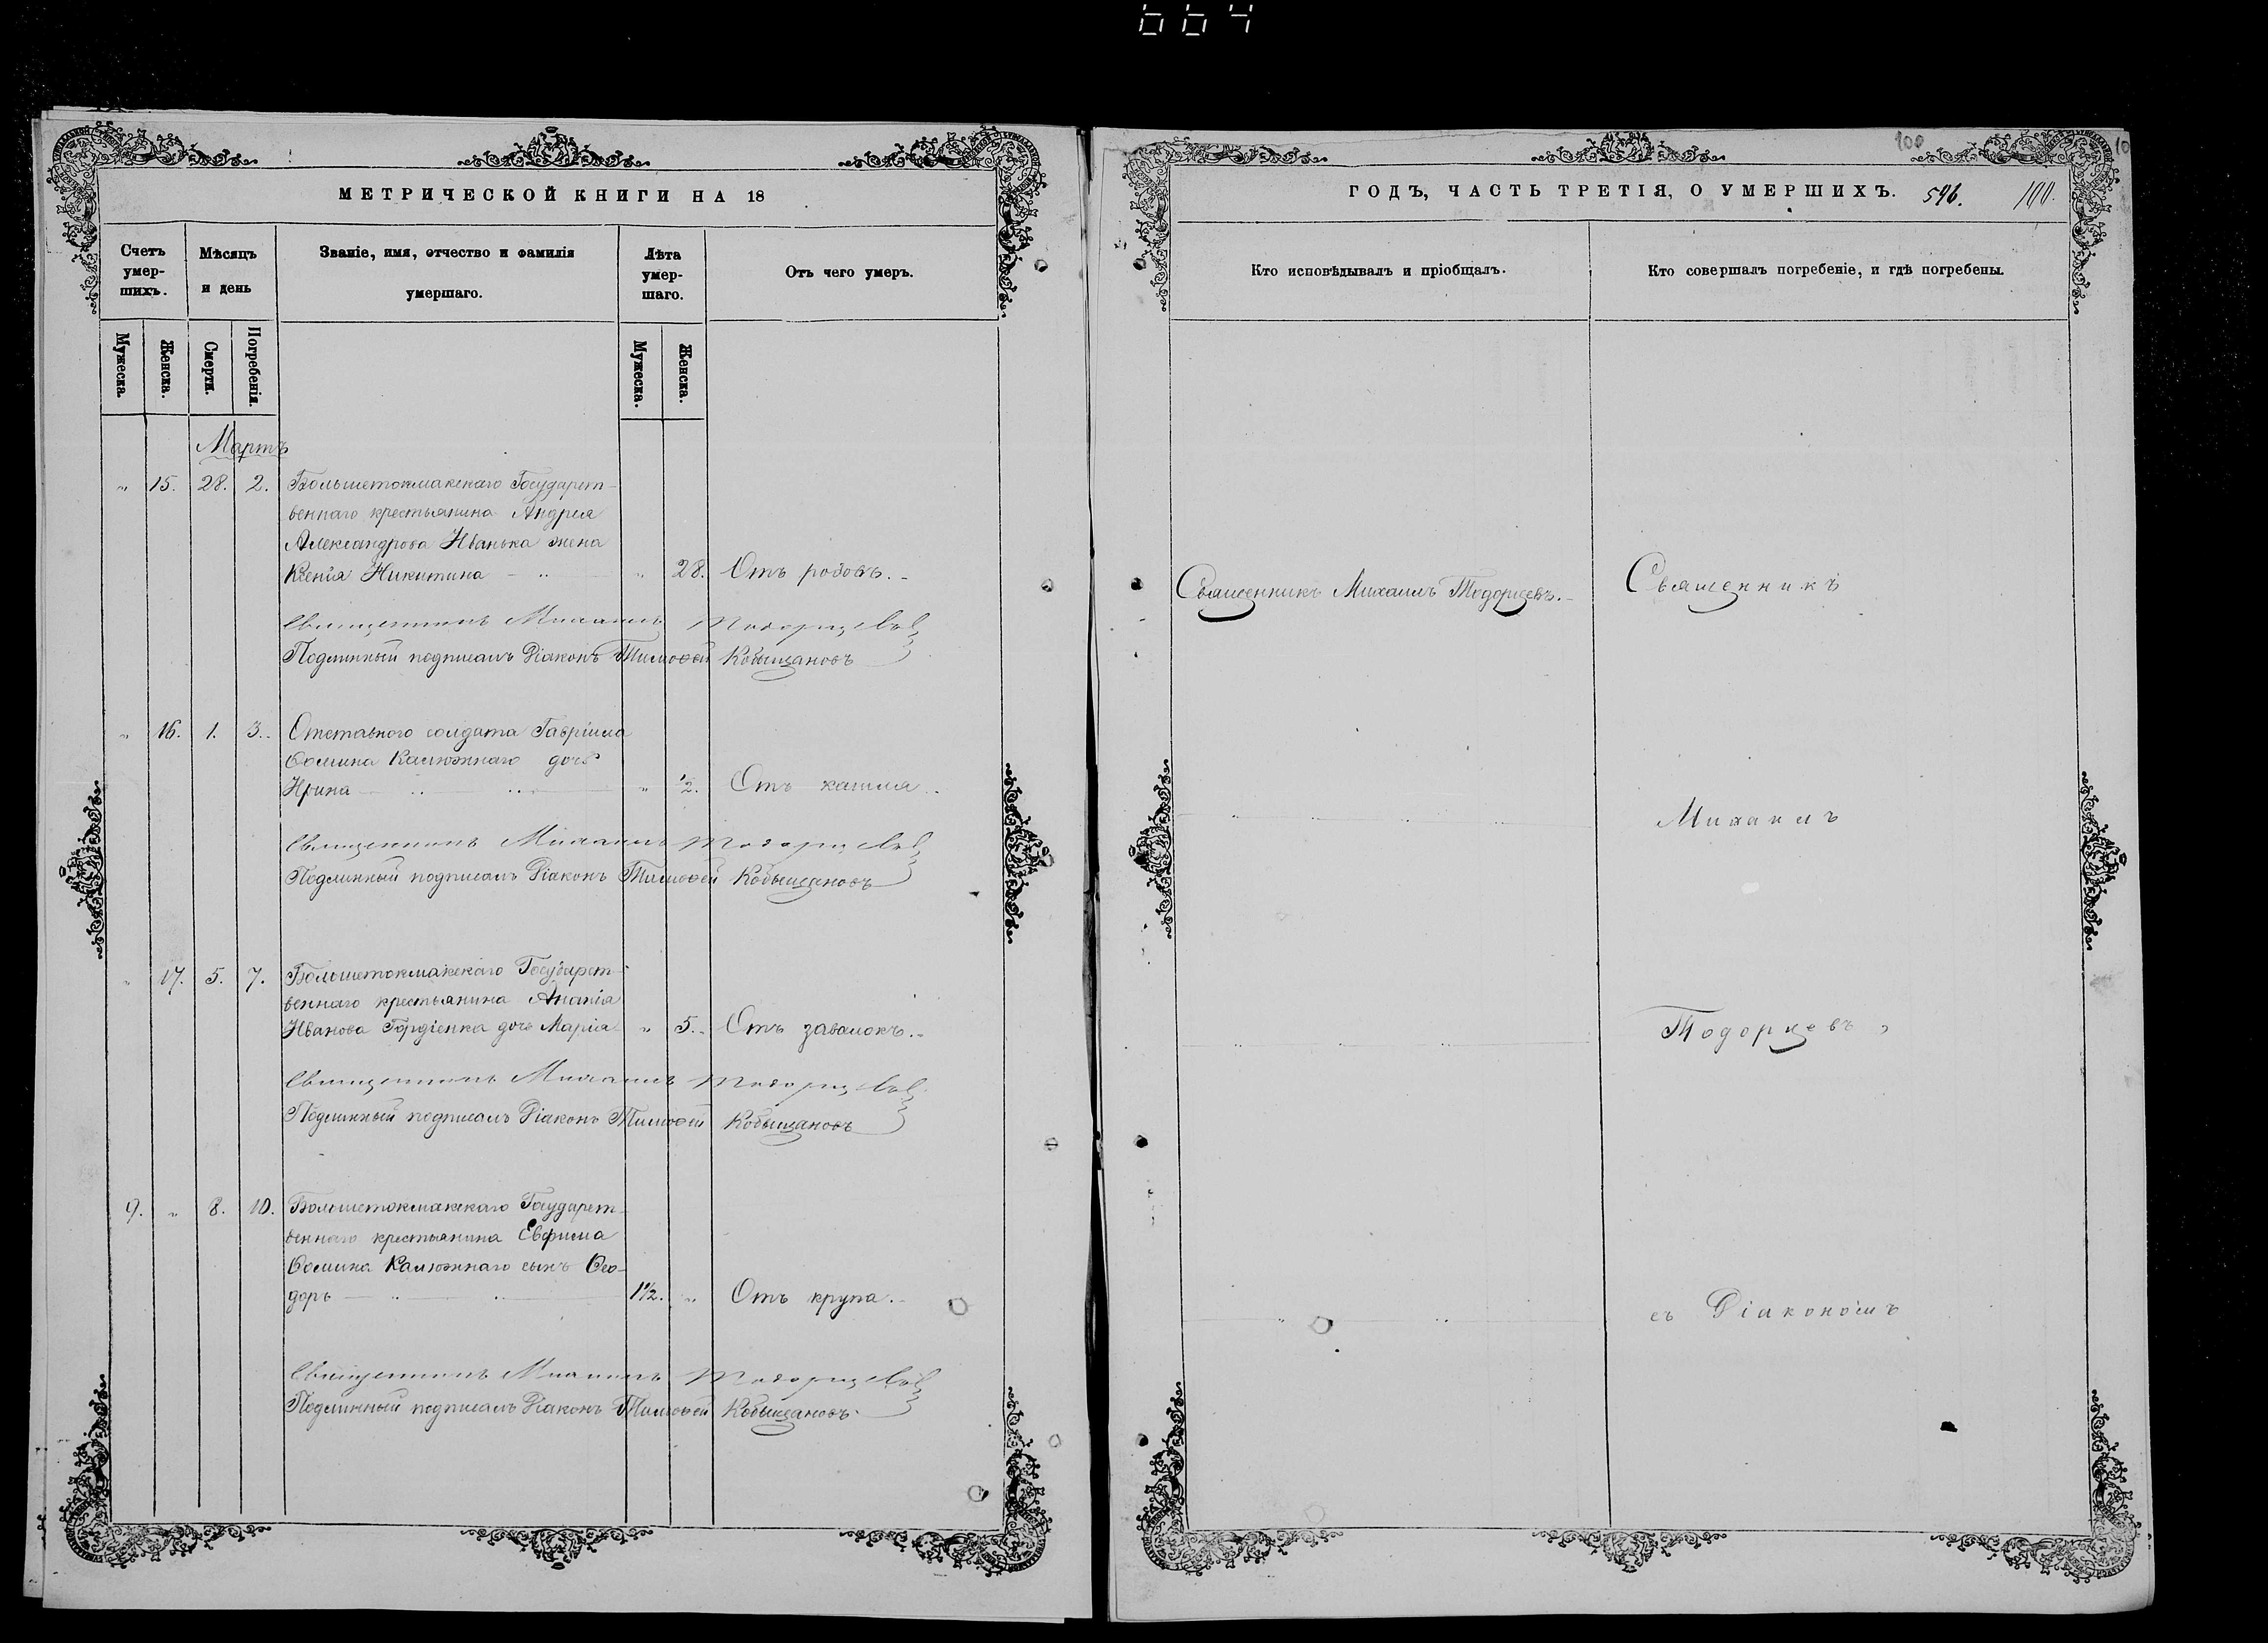 664
МЕТРИЧЕСКОЙ КНИГИ НА 18
Счетъ умер-шихъ.
Мѣсяцъ и день
Званіе, имя, отчество и фамилія умершаго.
Лѣта умер-шаго.
Отъ чего умеръ.
Мужеска.
Женска.
Смерти.
Погребенія.
Мужеска.
Женска.
Мартъ
" 15. 28. 2. Большетокмакскаго Государст-
веннаго крестьянина Андрея
Александрова Иванька жена
Ксенія Никитина - " " 28. Отъ родовъ.
Священникъ Михаилъ Тодорцевъ
Подлинный подписалъ Діаконъ Тимоѳей Кобыщановъ
" 16. 1. 3. Отставного солдата Гавріила
Ѳомина Калюжнаго дочь
Ирина " " " 1/2. Отъ кашля.
Священникъ Михаилъ Тодорцевъ
Подлинный подписалъ Діаконъ Тимоѳей Кобыщановъ
" 17. 5. 7. Большетокмакскаго Государст-
веннаго крестьянина Ананія
Иванова Гордіенка дочь Марія " 5. Отъ завалокъ.
Священникъ Михаилъ Тодорцевъ
Подлинный подписалъ Діаконъ Тимоѳей Кобыщановъ
9. " 8. 10. Большетокмакскаго Государст-
веннаго крестьянина Евфима
Ѳомина Калюжнаго сынъ Ѳео-
доръ " " 1 1/2. " Отъ крупа.
Священникъ Михаилъ Тодорцевъ
Подлинный подписалъ Діаконъ Тимоѳей Кобыщановъ
100
10
ГОДЪ, ЧАСТЬ ТРЕТІЯ, О УМЕРШИХЪ. 596. 100.
Кто исповѣдывалъ и пріобщалъ.
Кто совершалъ погребеніе, и гдѣ погребены.
Священникъ Михаилъ Тодорцевъ.
Священникъ
Михаилъ
Тодорцевъ
съ Діакономъ